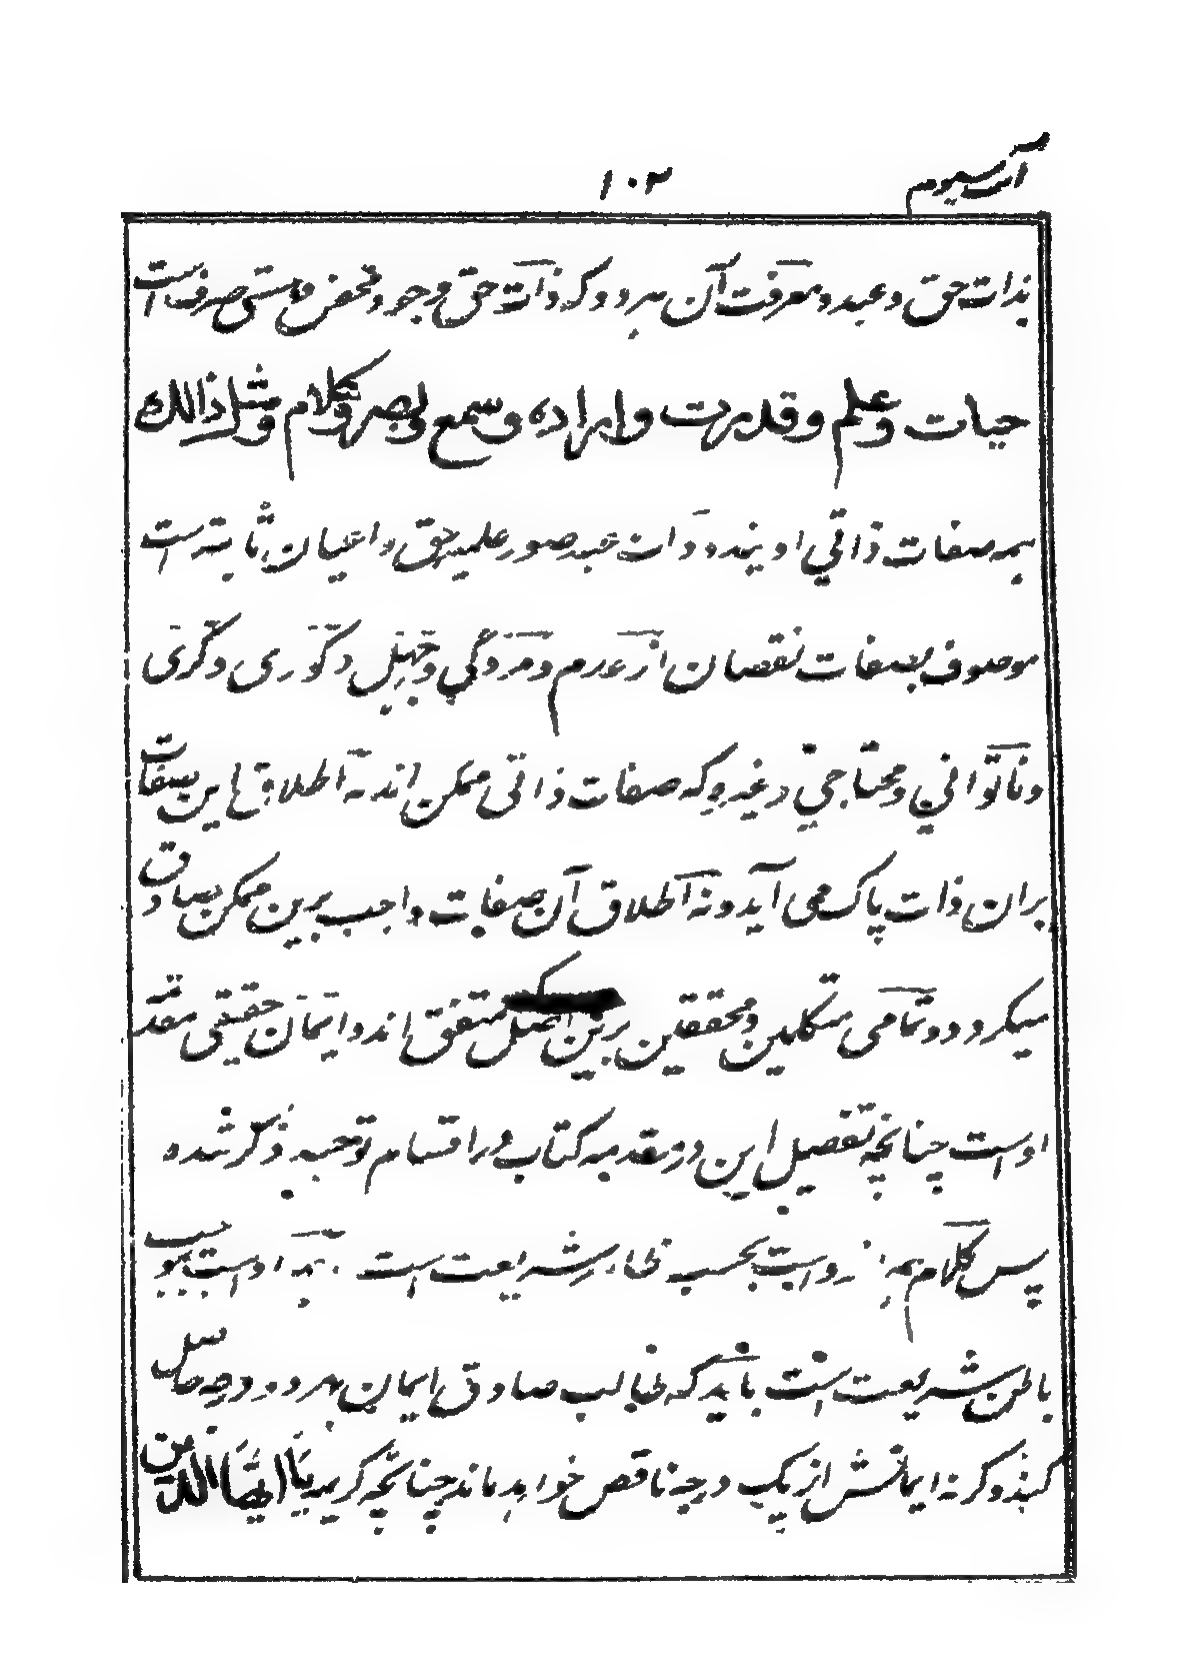 آیت سیوم ۱۰۳
بذات حق و عبد و معرفت آن هر دو که ذات حق وجود محض و هستی صرف است
حیات و علم و قدرت و اراده و سمع و بصر و کلام و مثل ذالک
همه صفات ذاتی اویند و ذات عبد صور علمیه حق و اعیان ثابته است
موصوف بصفات نقصان از عدم و مردگی و جهل و کوری و کری
و ناتوانی و محتاجی و غیره که صفات ذاتی ممکن اند نه اطلاق این صفات
بران ذات پاک می آید و نه اطلاق آن صفات واجب برین ممکن صادق
میگردد و تمامی متکلمین و محققین برین اصل متفق اند و ایمان حقیقی مقتد
اوست چنانچه تفصیل این در مقدمه کتاب و در اقسام توحید ذکر شده
پس کلام همه از روست بحسب ظاهر شریعت است همه اوست بموجب
باطن شریعت است باید که طالب صادق ایمان بهر دو درجه حاصل
کند و گرنه ایمانش از یک درجه ناقص خواهد ماند چنانچه کریمه یا ایها الذین